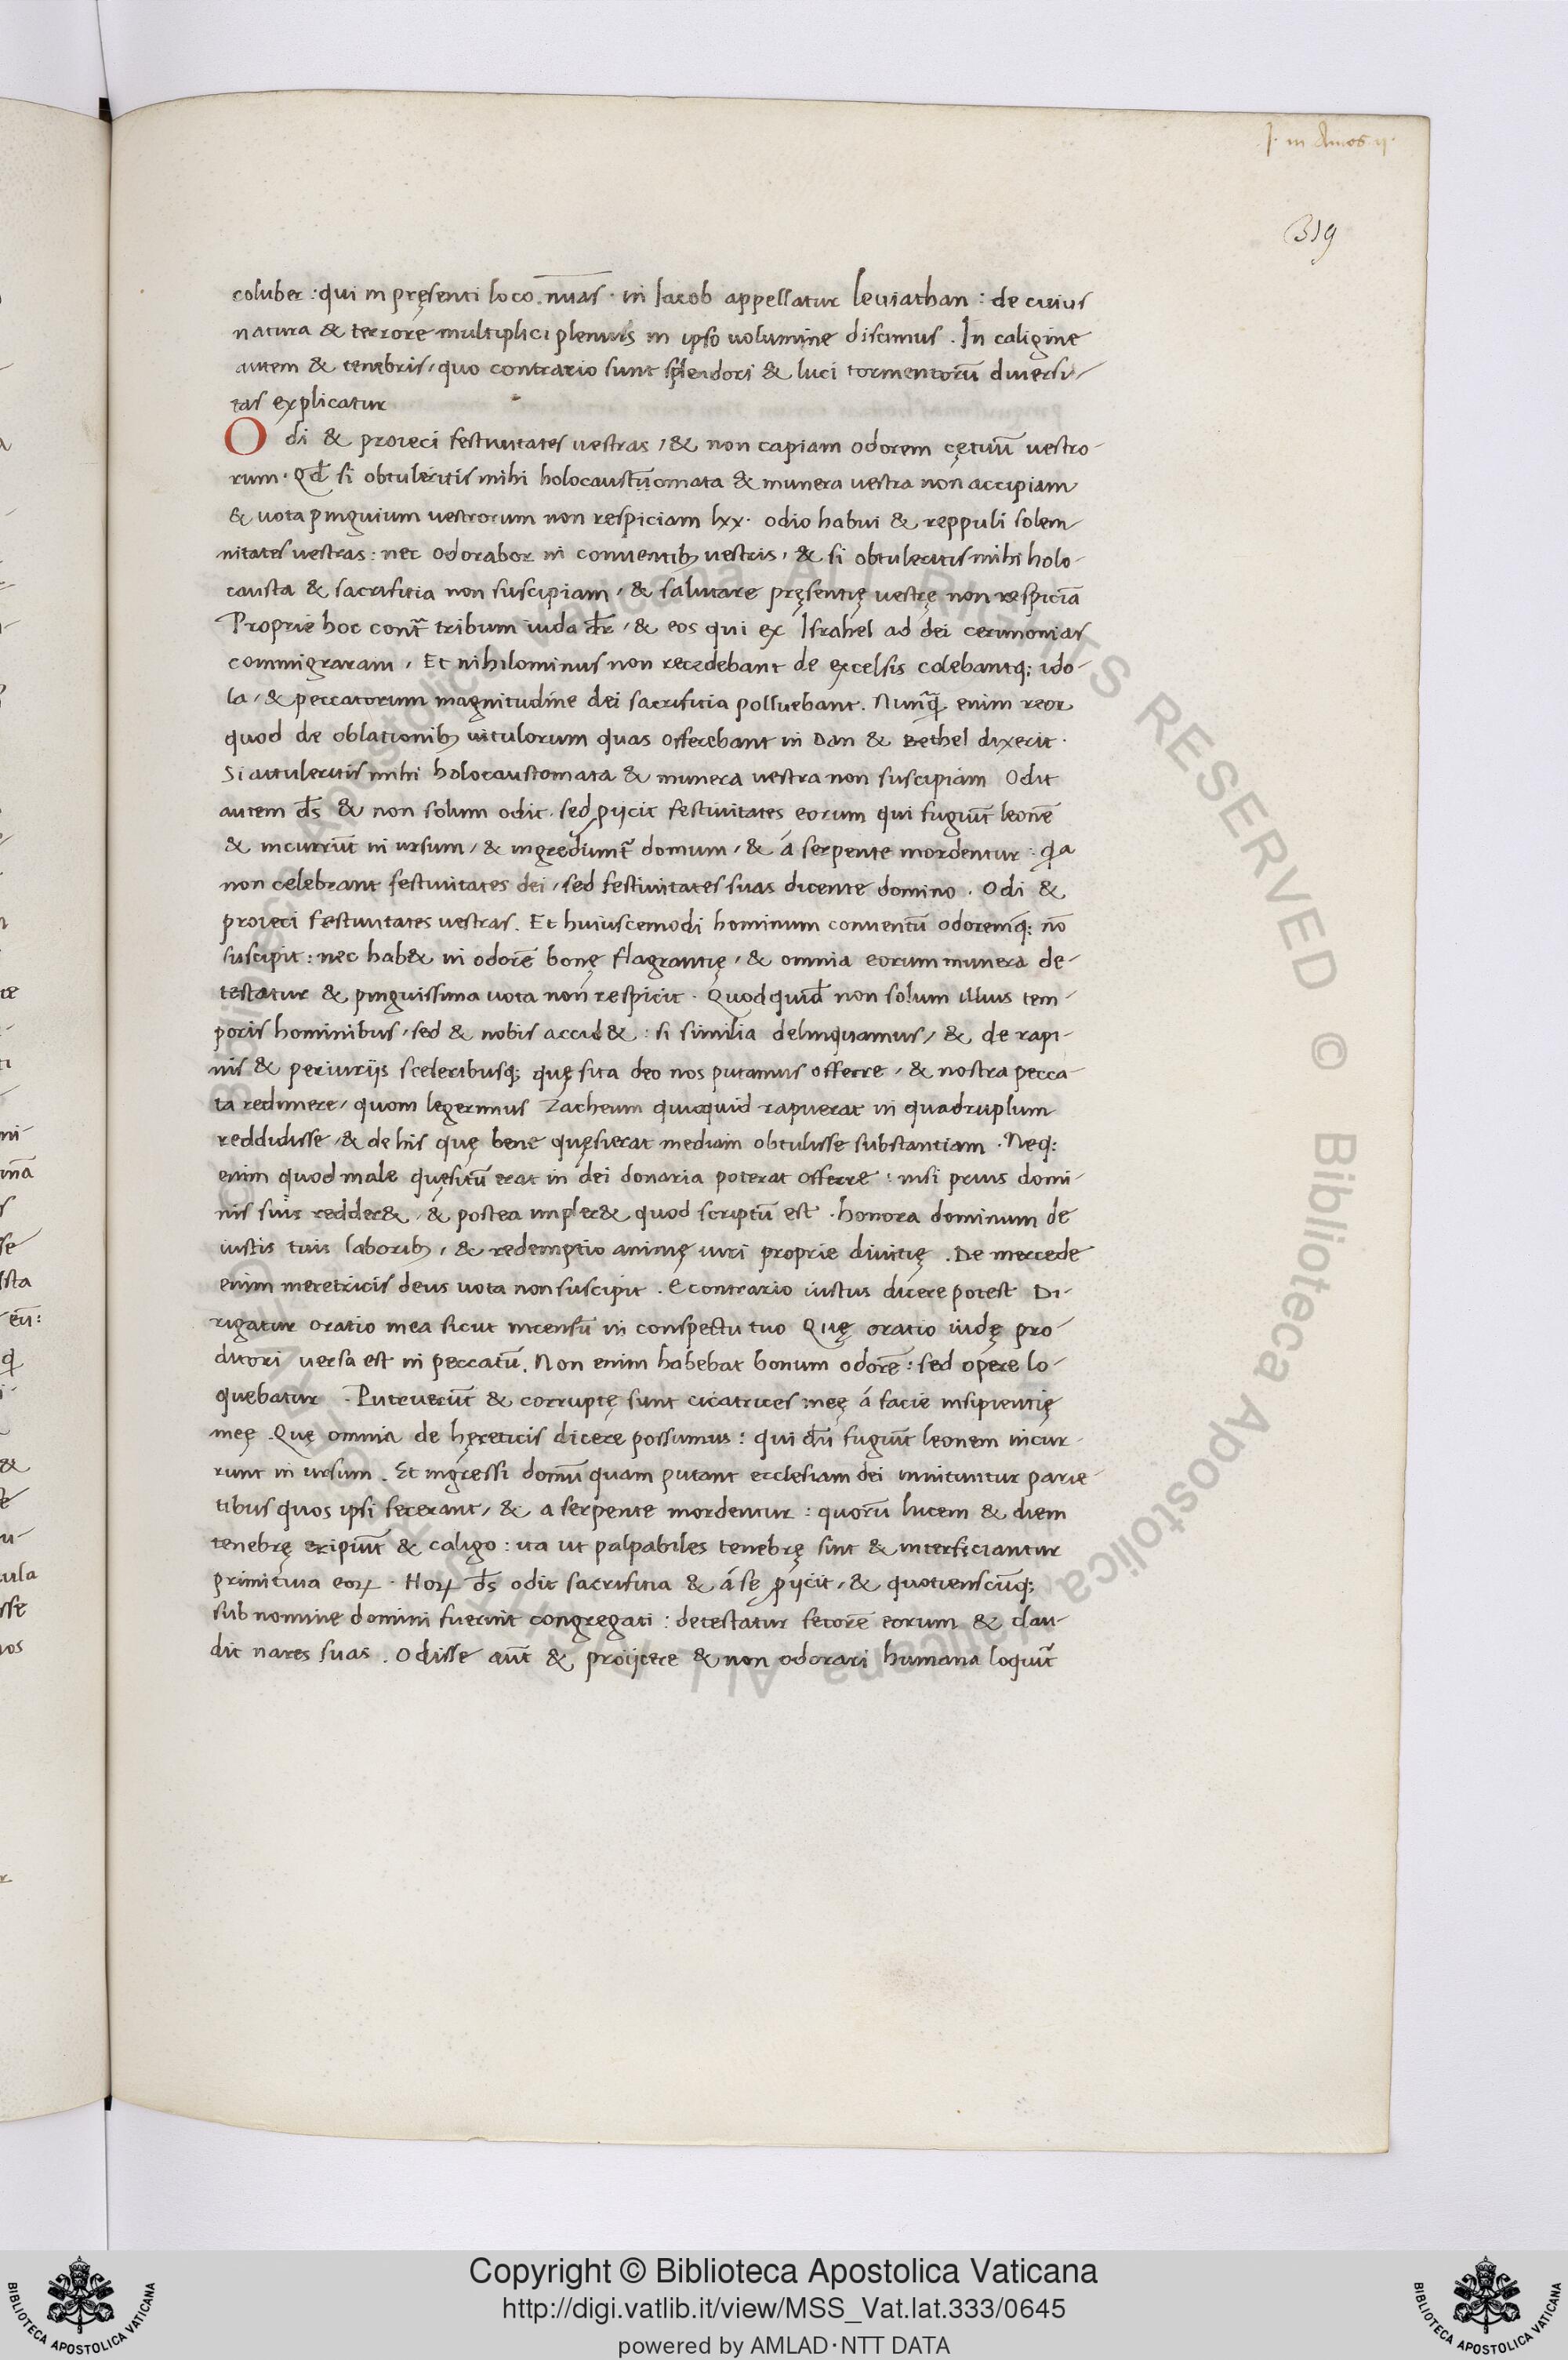 J. in Amos ij.
319
coluber : qui in pręsenti loco . nuas . in Iacob appellatur leuiathan : de cuius
natura & terrore multiplici plenius in ipso uolumine discimus . In caligine
autem & tenebris, quo contrario sunt splendori & luci tormentorū diuersi-
tas explicatur
Odi & proieci festiuitates uestras, & non capiam odorem cętuū uestro-
rum . Qđ si obtuleritis mihi holocaustūomata & munera uestra non accipiam
& uota pinguium uestrorum non respiciam lxx . odio habui & reppuli solem-
nitates uestras : nec odorabor in conuentibꝫ uestris, & si obtuleritis mihi holo-
causta & sacrificia non suscipiam, & salutare pręsentię uestrę non respiciā
Proprie hoc cont̄ tribum iuda dr̄, & eos qui ex Israhel ad dei cerimonias
commigraram, Et nihilominus non recedebant de excelsis colebantqꝫ ido-
la, & peccatorum magnitudine dei sacrificia polluebant . Nunq̄ enim reor
quod de oblationibꝫ uitulorum quas offerebant in Dan & Bethel dixerit .
Si attuleritis mihi holocaustomata & munera uestra non suscipiam Odit
autem ds̄ & non solum odit . sed ꝓijcit festiuitates eorum qui fugiūt leonē
& incurrūt in ursum, & ingrediunt̄ domum, & á serpente mordentur : qa
non celebrant festiuitates dei, sed festiuitates suas dicente domino . Odi &
proieci festiuitates uestras . Et huiuscemodi hominum conuentū odoremqꝫ nō
suscipit : nec hab& in odorē bonę flagrantię, & omnia eorum munera de-
testatur & pinguissima uota non respicit . Quod quid̄ non solum illius tem-
poris hominibus, sed & nobis accid& : si similia delinquamus, & de rapi-
nis & periurijs sceleribusqꝫ quę sita deo nos putamus offerre, & nostra pecca-
ta redimere, quom legerimus Zacheum quicquid rapuerat in quadruplum
reddidisse, & de his quę bene quęsierat mediam obtulisse substantiam . Neqꝫ
enim quod male quęsitū erat in dei donaria poterat offerre : nisi prius domi-
nis suis redder&, & postea impler& quod scriptū est . honora dominum de
iustis tuis laboribꝫ, & redemptio animę uiri proprie diuitię . De mercede
enim meretricis deus uota non suscipit . E contrario iustus dicere potest Di-
rigatur oratio mea sicut incensū in conspectu tuo Quę oratio iudę pro-
ditori uersa est in peccatū . Non enim habebat bonum odorē : sed opere lo-
quebatur . Putruerūt & corruptę sunt cicatrices meę á facie insipientię
meę . Quę omnia de hęreticis dicere possumus : qui dū fugiūt leonem incur-
runt in ursum . Et ingressi domū quam putant ecclesiam dei innituntur parie-
tibus quos ipsi fecerant, & a serpente mordentur : quorū lucem & diem
tenebrę eripiūt & caligo : ita ut palpabiles tenebrę sint & interficiantur
primitiua eoꝝ . Hoꝝ ds̄ odit sacrificia & á se ꝓijcit, & quotienscūqꝫ
sub nomine domini fuerint congregati : detestatur fetorē eorum & clau-
dit nares suas . Odisse aūt & proijcere & non odorari humana loquit̄
Copyright © Biblioteca Apostolica Vaticana
http://digi.vatlib.it/view/MSS_Vat.lat.333/0645
powered by AMLAD·NTT DATA
BIBLIOTECA APOSTOLICA VATICANA
BIBLIOTECA APOSTOLICA VATICANA